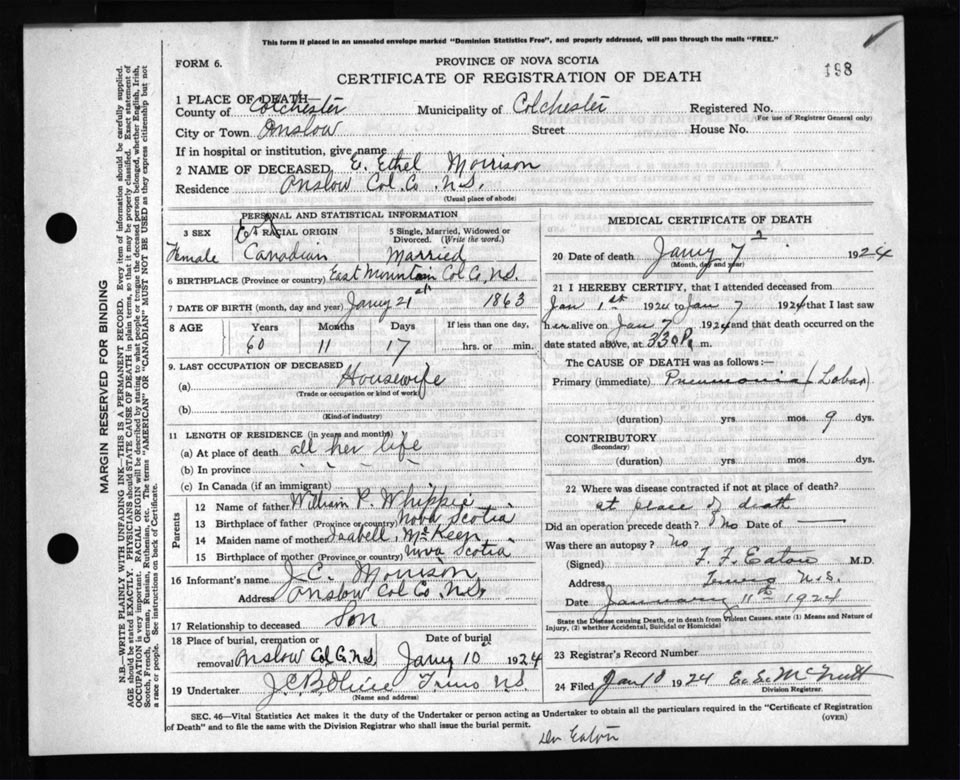 This form if placed in an unsealed envelope marked "Dominion Statistics Free", and properly addressed, will pass through the mails "FREE."
FORM 6.
PROVINCE OF NOVA SCOTIA
198
CERTIFICATE OF REGISTRATION OF DEATH
1 PLACE OF DEATH—
County of Colchester Municipality of Colchester Registered No.
(For use of Registrar General only)
City or Town Onslow Street House No.
If in hospital or institution, give name
2 NAME OF DECEASED E. Ethel Morrison
Residence Onslow Col. Co. N.S.
(Usual place of abode)
PERSONAL AND STATISTICAL INFORMATION
3 SEX 4 RACIAL ORIGIN 5 Single, Married, Widowed or Divorced. (Write the word.)
Female Canadian Married
6 BIRTHPLACE (Province or country) East Mountain Col Co, N.S.
7 DATE OF BIRTH (month, day and year) Jany 21st 1863
8 AGE Years Months Days If less than one day,
60 11 17 hrs. or min.
9. LAST OCCUPATION OF DECEASED
(a) Housewife
(Trade or occupation or kind of work)
(b)
(Kind of industry)
11 LENGTH OF RESIDENCE (in years and months)
(a) At place of death all her life
(b) In province " " " "
(c) In Canada (if an immigrant)
Parents
12 Name of father William P. Whippie
13 Birthplace of father (Province or country) Nova Scotia
14 Maiden name of mother Isabell McKeen
15 Birthplace of mother (Province or country) Nova Scotia
16 Informant's name J. C. Morrison
Address Onslow Col Co. N.S.
17 Relationship to deceased Son
18 Place of burial, cremation or removal Onslow Col Co. N.S. Date of burial Jany 10th 1924
19 Undertaker Truro N.S.
(Name and address)
MEDICAL CERTIFICATE OF DEATH
20 Date of death Jany 7 1924
(Month, day and year)
21 I HEREBY CERTIFY, that I attended deceased from
Jan 1st 1924 to Jan 7 1924 that I last saw
her alive on Jan 7 1924 and that death occurred on the
date stated above, at 330 P. m.
The CAUSE OF DEATH was as follows:—
Primary (immediate) Pneumonia (Lobar)
(duration) yrs. mos. 9 dys.
CONTRIBUTORY
(Secondary)
(duration) yrs. mos. dys.
22 Where was disease contracted if not at place of death?
at place of death
Did an operation precede death? No Date of —
Was there an autopsy? No
(Signed) F. F. Eaton M.D.
Address Truro N.S.
Date January 11th 1924
State the Disease causing Death, or in death from Violent Causes, state (1) Means and Nature of Injury, (2) whether Accidental, Suicidal or Homicidal
23 Registrar's Record Number
24 Filed Jan 10 1924 E. S. McNutt
Division Registrar.
SEC. 46—Vital Statistics Act makes it the duty of the Undertaker or person acting as Undertaker to obtain all the particulars required in the "Certificate of Registration
of Death" and to file the same with the Division Registrar who shall issue the burial permit.
(OVER)
Dr Eaton
MARGIN RESERVED FOR BINDING
N.B.—WRITE PLAINLY WITH UNFADING INK—THIS IS A PERMANENT RECORD. Every item of information should be carefully supplied.
AGE should be stated EXACTLY. PHYSICIANS should STATE CAUSE OF DEATH in plain terms, so that it may be properly classified. Exact statement of
OCCUPATION is very important. RACIAL ORIGIN will be described by stating to what people or tongue the deceased person belonged, whether English, Irish,
Scotch, French, German, Russian, Ruthenian, etc. The terms "AMERICAN" OR "CANADIAN" MUST NOT BE USED as they express citizenship but not
a race or people. See instructions on back of Certificate.